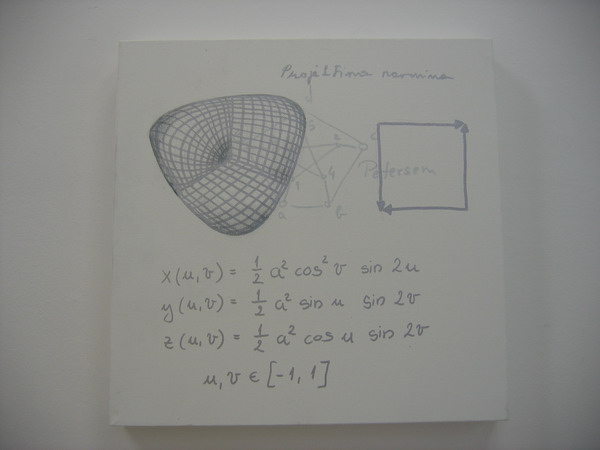 Projektivna ravnina
5 e c
Petersen
1 4
a b
x(u,v) = 1/2 a² cos² v sin 2u
y(u,v) = 1/2 a² sin u sin 2v
z(u,v) = 1/2 a² cos u sin 2v
u,v ∈ [-1, 1]